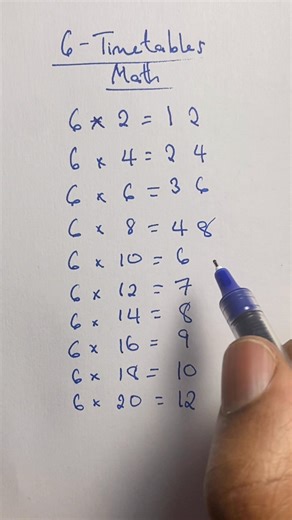 6 - Timetables
Math
6 * 2 = 1 2
6 × 4 = 2 4
6 × 6 = 3 6
6 × 8 = 4 8
6 × 10 = 6
6 × 12 = 7
6 × 14 = 8
6 × 16 = 9
6 × 18 = 10
6 × 20 = 12